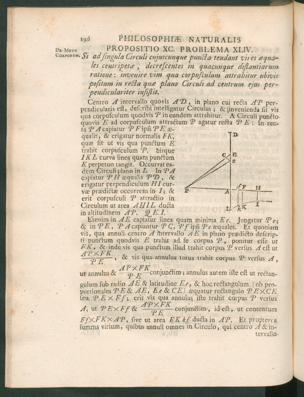 196 PHILOSOPHIÆ NATURALIS
De Motu
Corporum.
PROPOSITIO XC. PROBLEMA XLIV.
Si ad singula Circuli cujuscunque puncta tendant vires æqua-
les centripetæ, decrescentes in quacunque distantiarum
ratione: invenire vim qua corpusculum attrahitur ubivis
positum in recta quæ plano Circuli ad centrum ejus per-
pendiculariter insistit.
Centro A intervallo quovis AD, in plano cui recta AP per-
pendicularis est, describi intelligatur Circulus; & invenienda sit vis
qua corpusculum quodvis P in eundem attrahitur. A Circuli puncto
quovis E ad corpusculum attractum P agatur recta PE: In rec-
ta PA capiatur PF ipsi PE æ-
qualis, & erigatur normalis FK,
quæ sit ut vis qua punctum E
trahit corpusculum P. Sitque
IKL curva linea quam punctum
K perpetuo tangit. Occurrat ea-
dem Circuli plano in L. In PA
capiatur PH æqualis PD, &
erigatur perpendiculum HI cur-
væ prædictæ occurrens in I; &
erit corpusculi P attractio in
Circulum ut area AHIL ducta
in altitudinem AP. Q.E.I.
Etenim in AE capiatur linea quam minima Ee. Jungatur Pe;
& in PE, PA capiantur PC, Pf ipsi Pe æquales. Et quoniam
vis, qua annuli centro A intervallo AE in plano prædicto descrip-
ti punctum quodvis E trahit ad se corpus P, ponitur esse ut
FK, & inde vis qua punctum illud trahit corpus P versus A est ut
AP×FK
PE , & vis qua annulus totus trahit corpus P versus A,
ut annulus & AP×FK
PE conjunctim; annulus autem iste est ut rectan-
gulum sub radio AE & latitudine Ee, & hoc rectangulum (ob pro-
portionales PE & AE, Ee & CE) æquatur rectangulo PE×CE
seu PE×Ff; erit vis qua annulus iste trahit corpus P versus
A, ut PE×Ff & AP×FK
PE conjunctim, id est, ut contentum
Ff×FK×AP, sive ut area FKkf ducta in AP. Et propterea
summa virium, quibus annuli omnes in Circulo, qui centro A & in-
tervallo